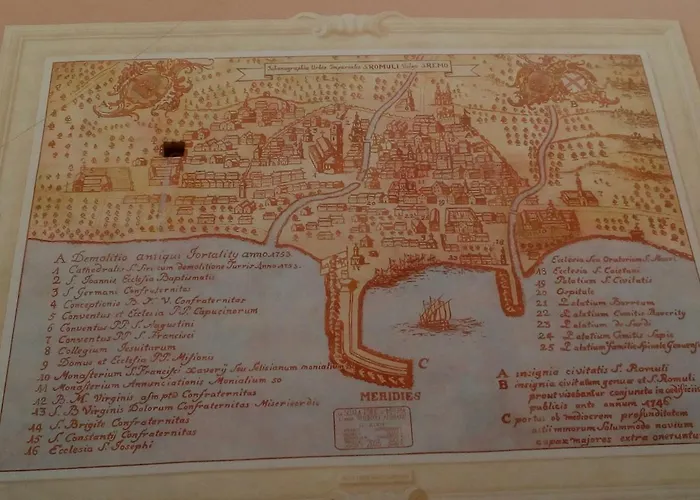 Urbis Imperialis S. ROMULI S. REMO
B
A Demolitio antiqui Fortality ANNO 1753
1 Cathedralis S. Siri cum demolitione Turris Anno 1753.
2 S. Joannis Ecclesia Baptismatis
3 S. Germani Confraternitas
4 Conceptionis B. M. V. Confraternitas
5 Conventus et Ecclesia PP. Capucinorum
6 Conventus PP. S. Augustini
7 Conventus PP. S. Francisci
8 Collegium Jesuitarum
9 Domus et Ecclesia PP. Misionis
10 Monasterium S. Francisci Xavery Seu Salisianum monialium
11 Monasterium Annunciationis Monialium
12 B. M. Virginis Confraternitas
13 S. B. Virginis Dolorum Confraternitas Misericordie
14 S. Brigite Confraternitas
15 S. Constantij Confraternitas
16 Ecclesia S. Josephi
C
MERIDIES
Ecclesia Seu Oratorium S.
18 Ecclesia S. Caietani
19 Palatium S. Civitatis
20 Ospitale
21 Palatium Borreum
22 Palatium Comitis
23 Palatium de
24 Palatium Comitis Sapia
25 Palatium familie
A insignia civitatis S. Romuli
B insignia civitatum genue et S. Romuli
prout visebantur conjuncta in edificiis
publicis ante annum 1746
C portus ob mediocrem profunditatem
minorum Solummodo navium
capax majores extra